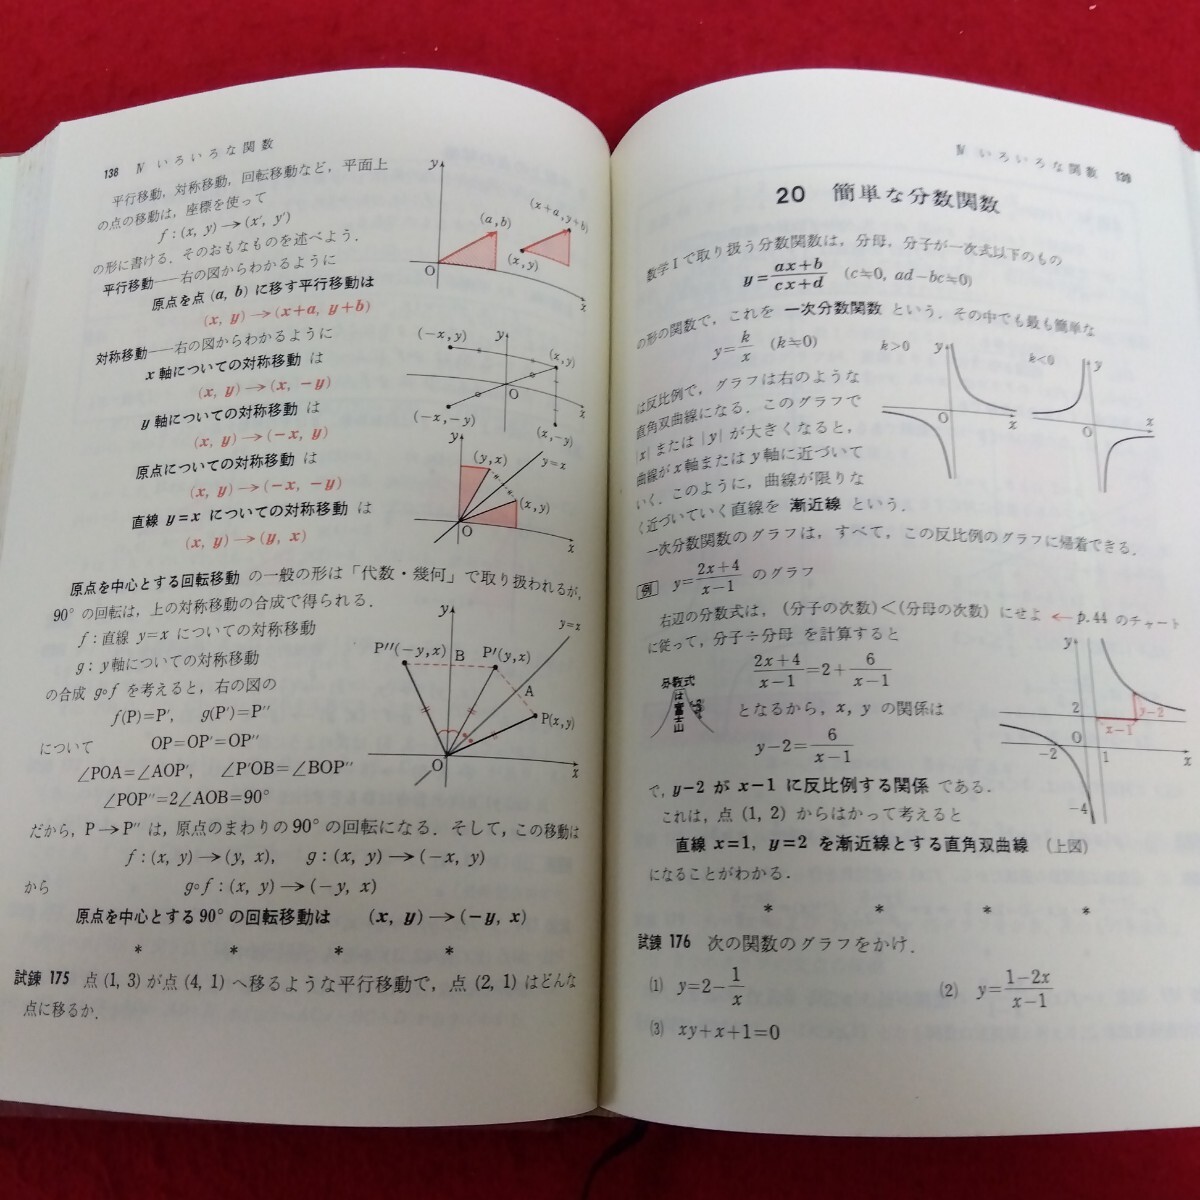 138 Ⅳ いろいろな関数
平行移動,対称移動,回転移動など,平面上
の点の移動は,座標を使って
f:(x, y)→(x′, y′)
の形に書ける.そのおもなものを述べよう.
平行移動——右の図からわかるように
原点を点 (a, b) に移す平行移動は
(x, y)→(x+a, y+b)
対称移動——右の図からわかるように
x 軸についての対称移動 は
(x, y)→(x, −y)
y 軸についての対称移動 は
(x, y)→(−x, y)
原点についての対称移動 は
(x, y)→(−x, −y)
直線 y=x についての対称移動 は
(x, y)→(y, x)
y
(a, b)
(x+a, y+b)
(x, y)
O
x
(−x, y)
y
(x, y)
O
x
(−x, −y)
(x, −y)
y
(y, x)
y=x
(x, y)
O
x
原点を中心とする回転移動 の一般の形は「代数・幾何」で取り扱われるが,
90° の回転は,上の対称移動の合成で得られる.
f:直線 y=x についての対称移動
g:y 軸についての対称移動
の合成 g∘f を考えると,右の図の
f(P)=P′, g(P′)=P″
について OP=OP′=OP″
∠POA=∠AOP′, ∠P′OB=∠BOP″
∠POP″=2∠AOB=90°
y
y=x
P″(−y, x)
B
P′(y, x)
A
P(x, y)
O
x
だから,P→P″ は,原点のまわりの 90° の回転になる.そして,この移動は
f:(x, y)→(y, x), g:(x, y)→(−x, y)
から g∘f:(x, y)→(−y, x)
原点を中心とする 90° の回転移動は (x, y)→(−y, x)
* * * *
試錬 175 点 (1, 3) が点 (4, 1) へ移るような平行移動で,点 (2, 1) はどんな
点に移るか.
Ⅳ いろいろな関数 139
20 簡単な分数関数
数学Ⅰで取り扱う分数関数は,分母,分子が一次式以下のもの
y=(ax+b)/(cx+d) (c≒0, ad−bc≒0)
の形の関数で,これを 一次分数関数 という.その中でも最も簡単な
y=k/x (k≒0)
は反比例で,グラフは右のような
直角双曲線になる.このグラフで
|x| または |y| が大きくなると,
曲線が x 軸または y 軸に近づいて
いく.このように,曲線が限りな
く近づいていく直線を 漸近線 という.
k>0
y
O
x
k<0
y
O
x
一次分数関数のグラフは,すべて,この反比例のグラフに帰着できる.
例 y=(2x+4)/(x−1) のグラフ
右辺の分数式は,(分子の次数)<(分母の次数) にせよ ←p.44 のチャート
に従って,分子÷分母 を計算すると
(2x+4)/(x−1)=2+6/(x−1)
となるから,x, y の関係は
y−2=6/(x−1)
分数式
は富士山
y
2
y−2
x−1
O
−2
1
x
−4
で,y−2 が x−1 に反比例する関係 である.
これは,点 (1, 2) からはかって考えると
直線 x=1, y=2 を漸近線とする直角双曲線 (上図)
になることがわかる.
* * * *
試錬 176 次の関数のグラフをかけ.
(1) y=2−1/x (2) y=(1−2x)/(x−1)
(3) xy+x+1=0